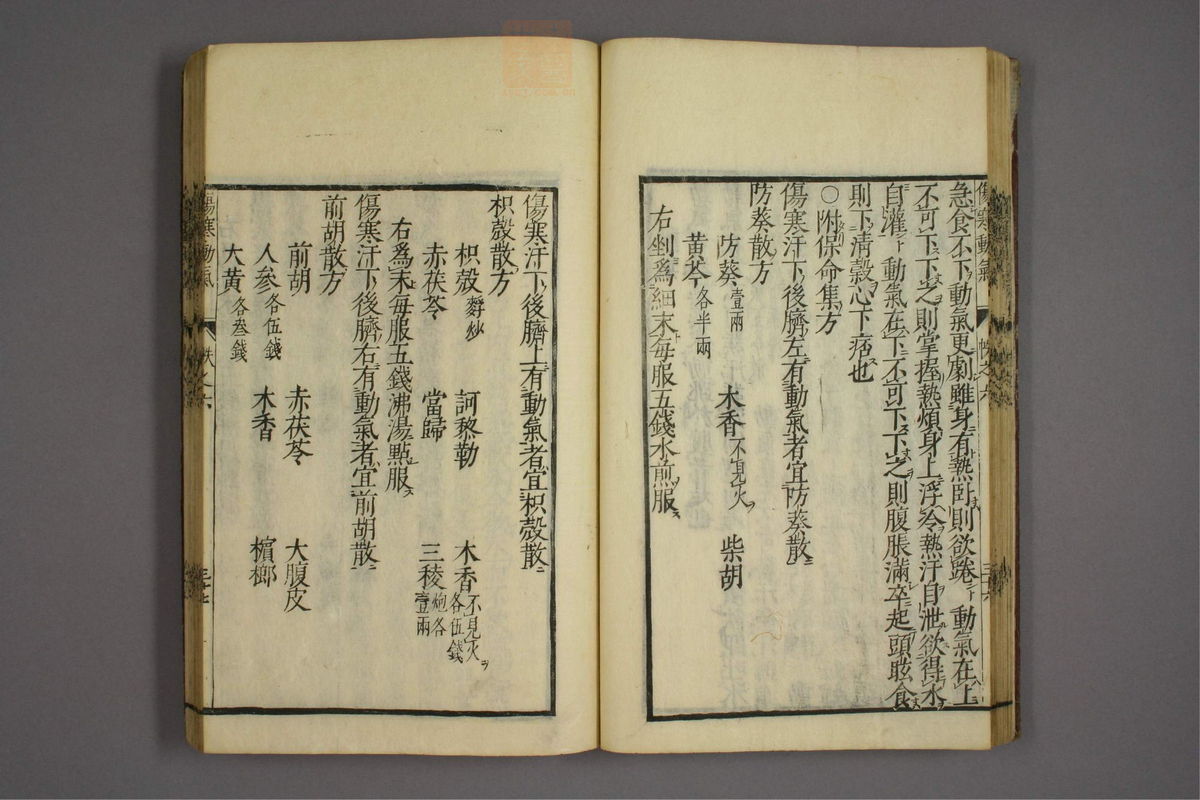 傷寒動氣
急食不下動氣更劇雖身有熱卧則欲踡 動氣在上
不可下下之則掌握熱煩身上浮冷熱汗自泄欲得水
自灌 動氣在下不可下下之則腹脹滿卒起頭眩食
則下清穀心下痞也
○附保命集方
傷寒汗下後臍左有動氣者宜防葵散
防葵散方
防葵壹兩 木香不見火 柴胡
黃芩各半兩
右剉爲細末每服五錢水煎服
傷寒汗下後臍上有動氣者宜枳殼散
枳殼散方
枳殼麩炒 訶黎勒 木香不見火各伍錢
赤茯苓 當歸 三稜炮各壹兩
右爲末每服五錢沸湯點服
傷寒汗下後臍右有動氣者宜前胡散
前胡散方
前胡 赤茯苓 大腹皮
人參各伍錢 木香 檳榔
大黃各叁錢
傷寒動氣 卷之六 三十七